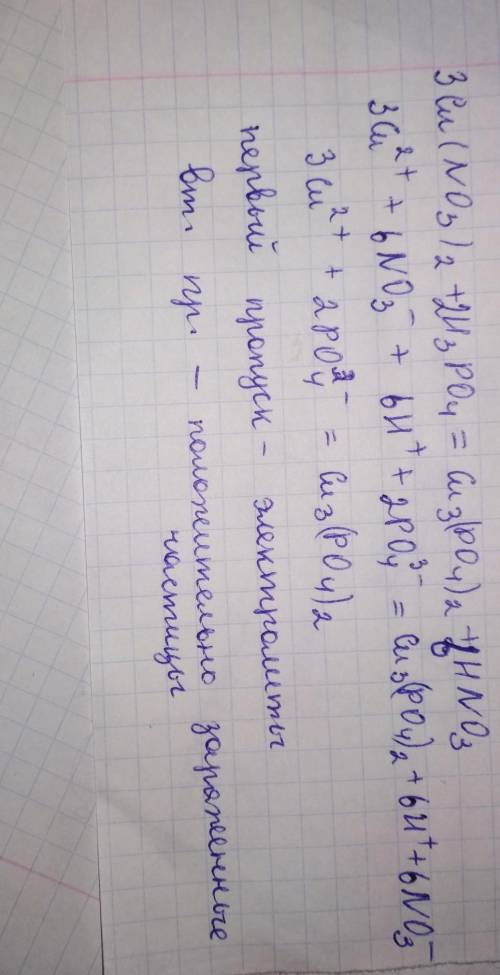 3Cu(NO₃)₂ + 2H₃PO₄ = Cu₃(PO₄)₂ + 6HNO₃
3Cu²⁺ + 6NO₃⁻ + 6H⁺ + 2PO₄³⁻ = Cu₃(PO₄)₂ + 6H⁺ + 6NO₃⁻
3Cu²⁺ + 2PO₄³⁻ = Cu₃(PO₄)₂
первый пропуск - электролиты
вт. пр. - положительно заряженные
частицы